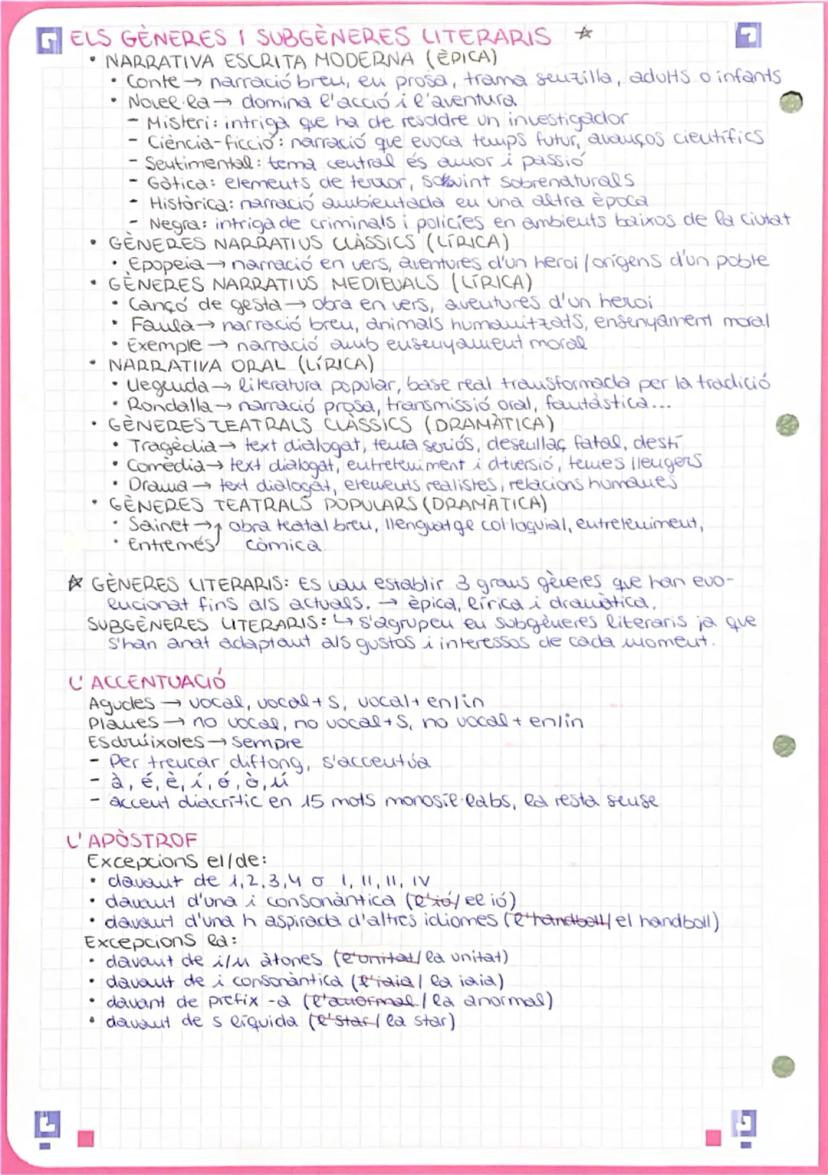 ELS GÈNERES I SUBGÈNERES LITERARIS ☆
• NARRATIVA ESCRITA MODERNA (ÈPICA)
• Conte → narració breu, en prosa, trama senzilla, adults o infants
• Novel·la → domina l'acció i l'aventura
- Misteri: intriga que ha de resoldre un investigador
- Ciència-ficció: narració que evoca temps futur, avanços científics
- Sentimental: tema central és amor i passió
- Gòtica: elements de terror, sovint sobrenaturals
- Històrica: narració ambientada en una altra època
- Negra: intriga de criminals i policies en ambients baixos de la ciutat
• GÈNERES NARRATIUS CLÀSSICS (LÍRICA)
• Epopeia → narració en vers, aventures d'un heroi / orígens d'un poble
• GÈNERES NARRATIUS MEDIEVALS (LÍRICA)
• Cançó de gesta → obra en vers, aventures d'un heroi
• Faula → narració breu, animals humanitzats, ensenyament moral
• Exemple → narració amb ensenyament moral
• NARRATIVA ORAL (LÍRICA)
• Llegenda → literatura popular, base real transformada per la tradició
• Rondalla → narració prosa, transmissió oral, fantàstica...
• GÈNERES TEATRALS CLÀSSICS (DRAMÀTICA)
• Tragèdia → text dialogat, tema seriós, desenllaç fatal, destí
• Comèdia → text dialogat, entreteniment i diversió, temes lleugers
• Drama → text dialogat, elements realistes, relacions humanes
• GÈNERES TEATRALS POPULARS (DRAMÀTICA)
• Sainet → obra teatal breu, llenguatge col·loquial, entreteniment,
• Entremés còmica
☆ GÈNERES LITERARIS: Es van establir 3 grans gèneres que han evo-
lucionat fins als actuals. → èpica, lírica i dramàtica.
SUBGÈNERES LITERARIS: ↳ s'agrupen en subgèneres literaris ja que
s'han anat adaptant als gustos i interessos de cada moment.
L'ACCENTUACIÓ
Agudes → vocal, vocal + s, vocal + en/in
Planes → no vocal, no vocal + s, no vocal + en/in
Esdrúixoles → sempre
- Per trencar diftong, s'accentúa
- à, é, è, í, ó, ò, ú
- accent diacrític en 15 mots monosíl·labs, la resta sense
L'APÒSTROF
Excepcions el/de:
• davant de 1, 2, 3, 4 o I, II, II, IV
• davant d'una i consonàntica (l'ió / el ió)
• davant d'una h aspirada d'altres idiomes (l'handball / el handball)
Excepcions la:
• davant de i/u àtones (l'unitat / la unitat)
• davant de i consonàntica (l'iaia / la iaia)
• davant de prefix -a (l'anormal / la anormal)
• davant de s líquida (l'star / la star)